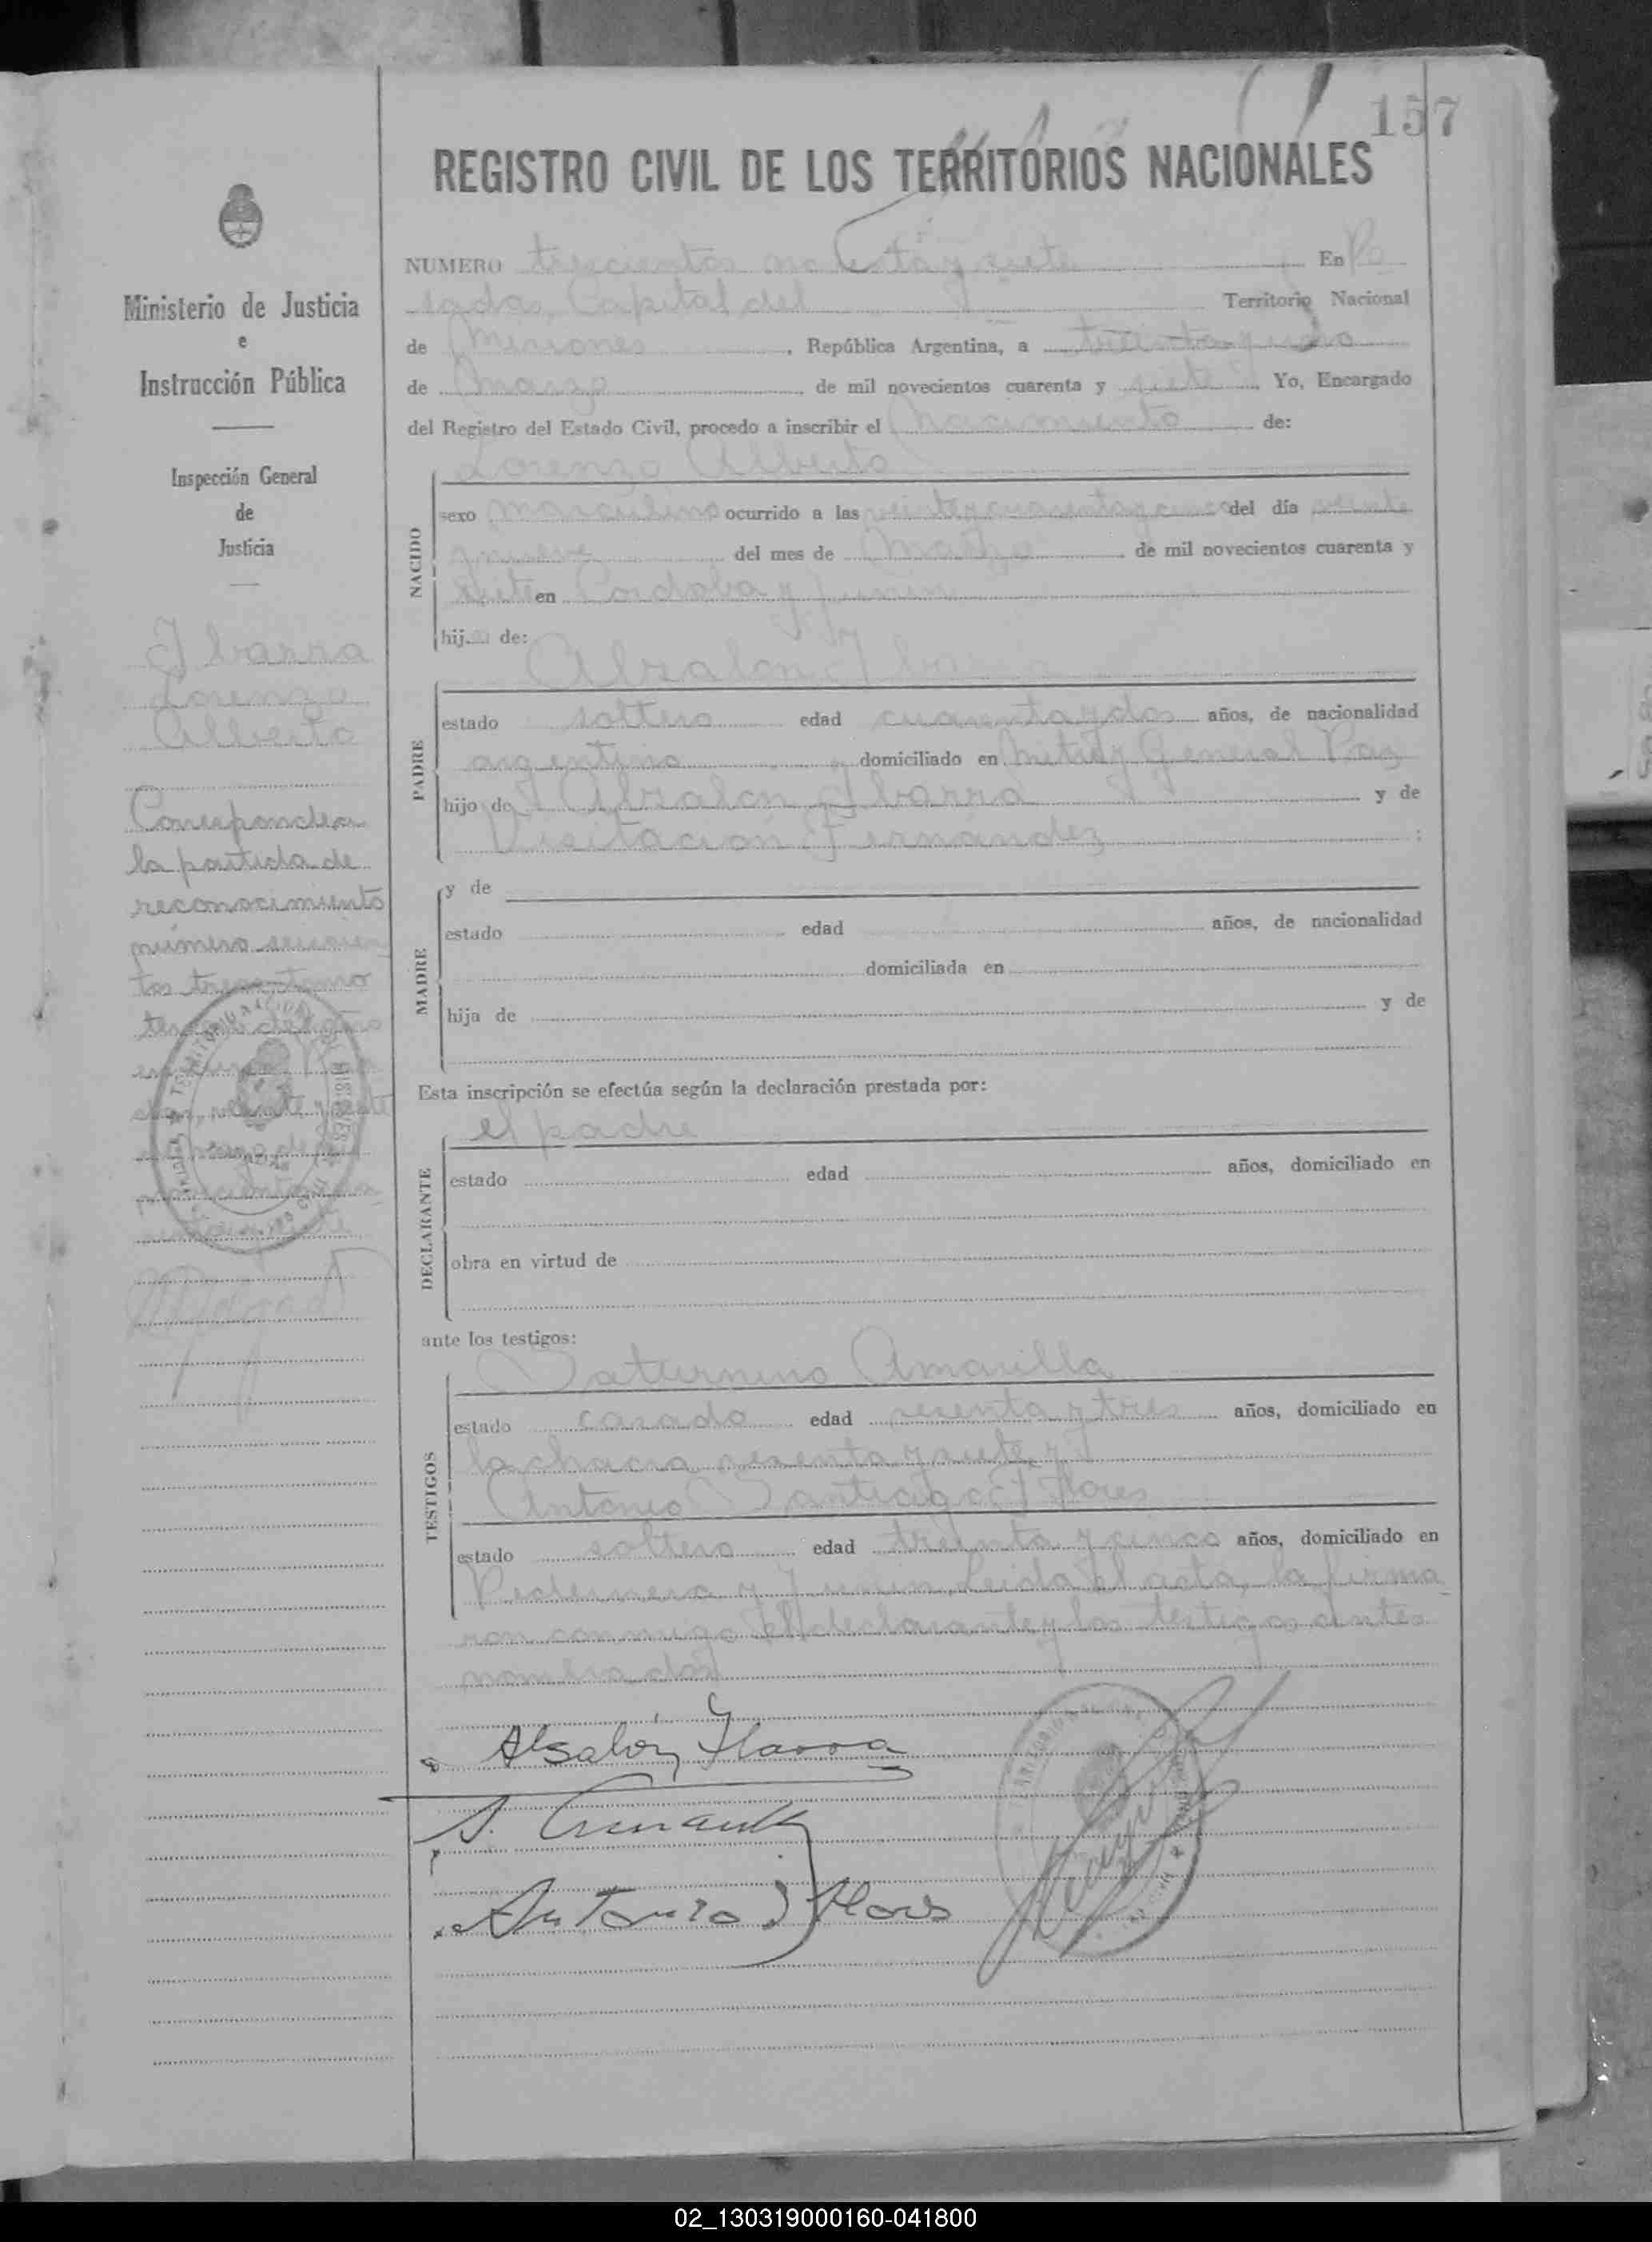 157
REGISTRO CIVIL DE LOS TERRITORIOS NACIONALES
Ministerio de Justicia
e
Instrucción Pública
Inspección General
de
Justicia
Ibarra
Lorenzo
Alberto
Corresponde a
la partida de
reconocimiento
número
NUMERO trescientos noventa y siete En Po
sadas, Capital del Territorio Nacional
de Misiones, República Argentina, a treinta y uno
de Marzo de mil novecientos cuarenta y siete Yo, Encargado
del Registro del Estado Civil, procedo a inscribir el nacimiento de:
Lorenzo Alberto
NACIDO
sexo masculino ocurrido a las veinte y cuarenta y cinco del día veinte
y nueve del mes de Marzo de mil novecientos cuarenta y
siete en Cordoba y Junin
hijo de:
Absalón Ibarra
PADRE
estado soltero edad cuarenta y dos años, de nacionalidad
argentino domiciliado en Mitre y General Paz
hijo de Absalón Ibarra y de
Visitación Fernandez :
MADRE
y de
estado edad años, de nacionalidad
domiciliada en
hija de y de
Esta inscripción se efectúa según la declaración prestada por:
el padre
DECLARANTE
estado edad años, domiciliado en
obra en virtud de
ante los testigos:
Saturnino Amarilla
TESTIGOS
estado casado edad sesenta y tres años, domiciliado en
la chacra sesenta y siete y
Antonio Santiago Flores
estado soltero edad treinta y cinco años, domiciliado en
Pedernera y Junin. Leida el acta, la firma
ron conmigo el declarante y los testigos antes
nombrados
Absalón Ibarra
S. Amarilla
Antonio S Flores
02_130319000160-041800